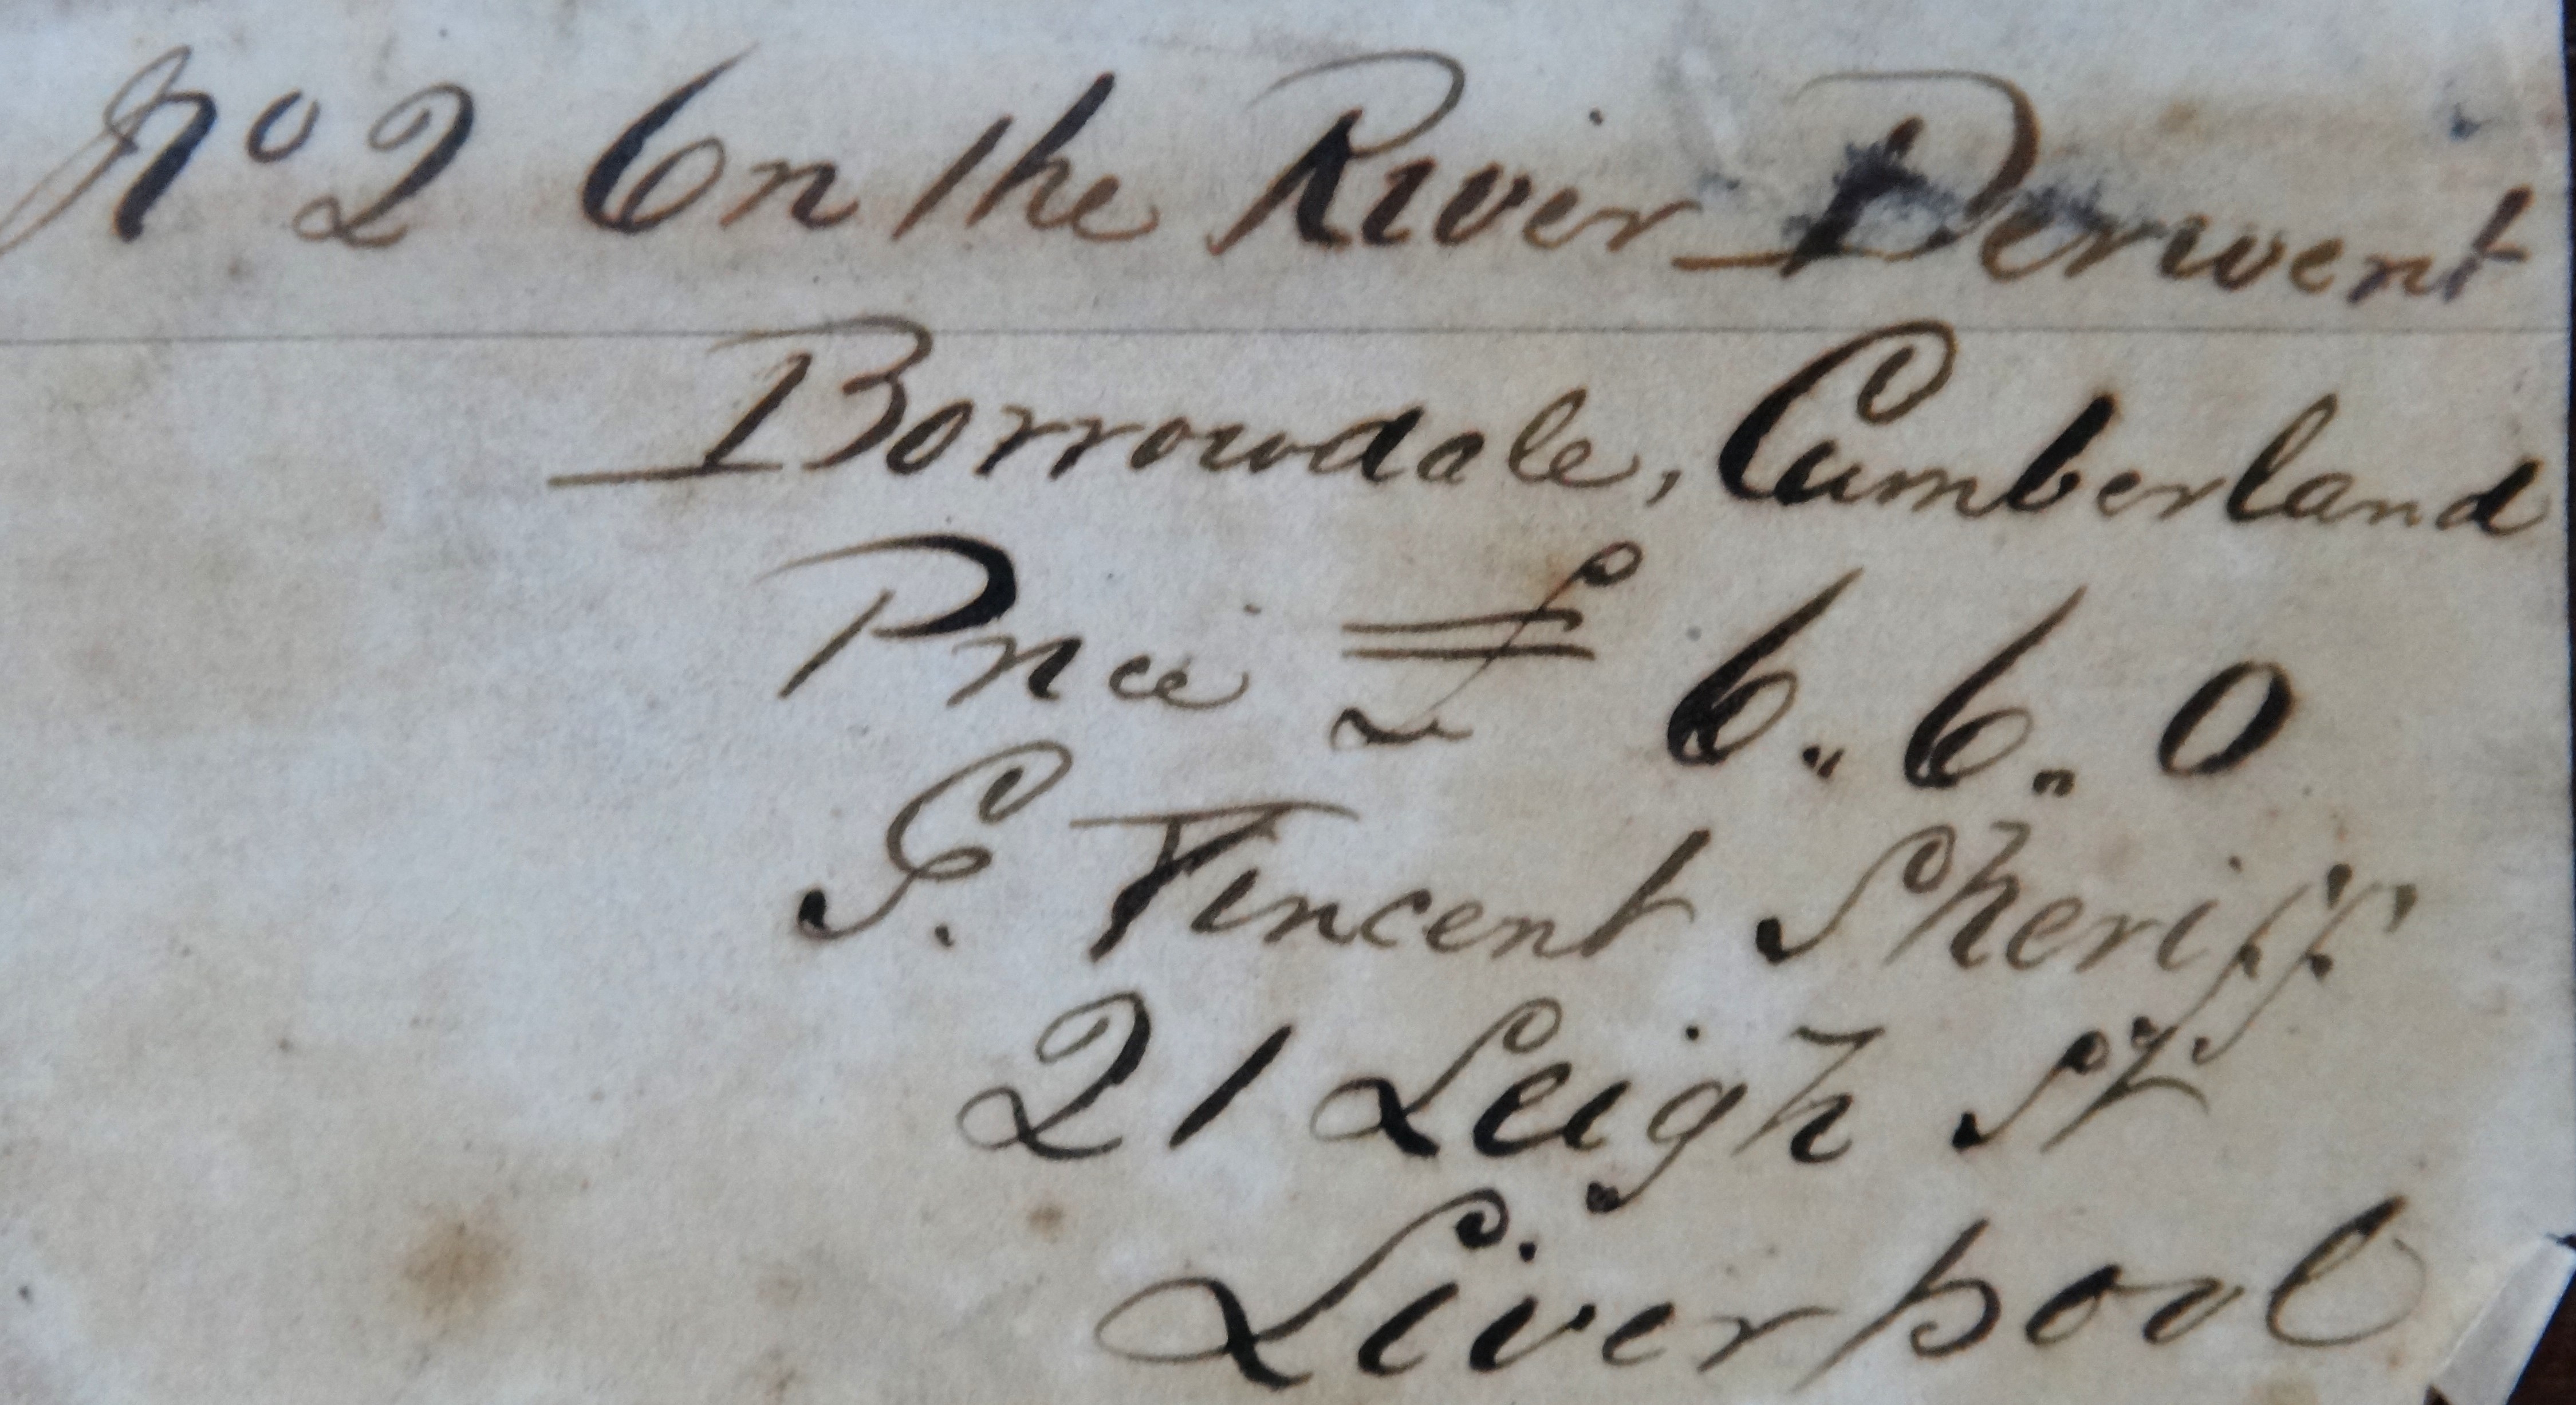 No 2 On the River Derwent
Borrowdale, Cumberland
Price £ 6 „ 6 „ 0
G. Vincent Sheriff
21 Leigh St
Liverpool